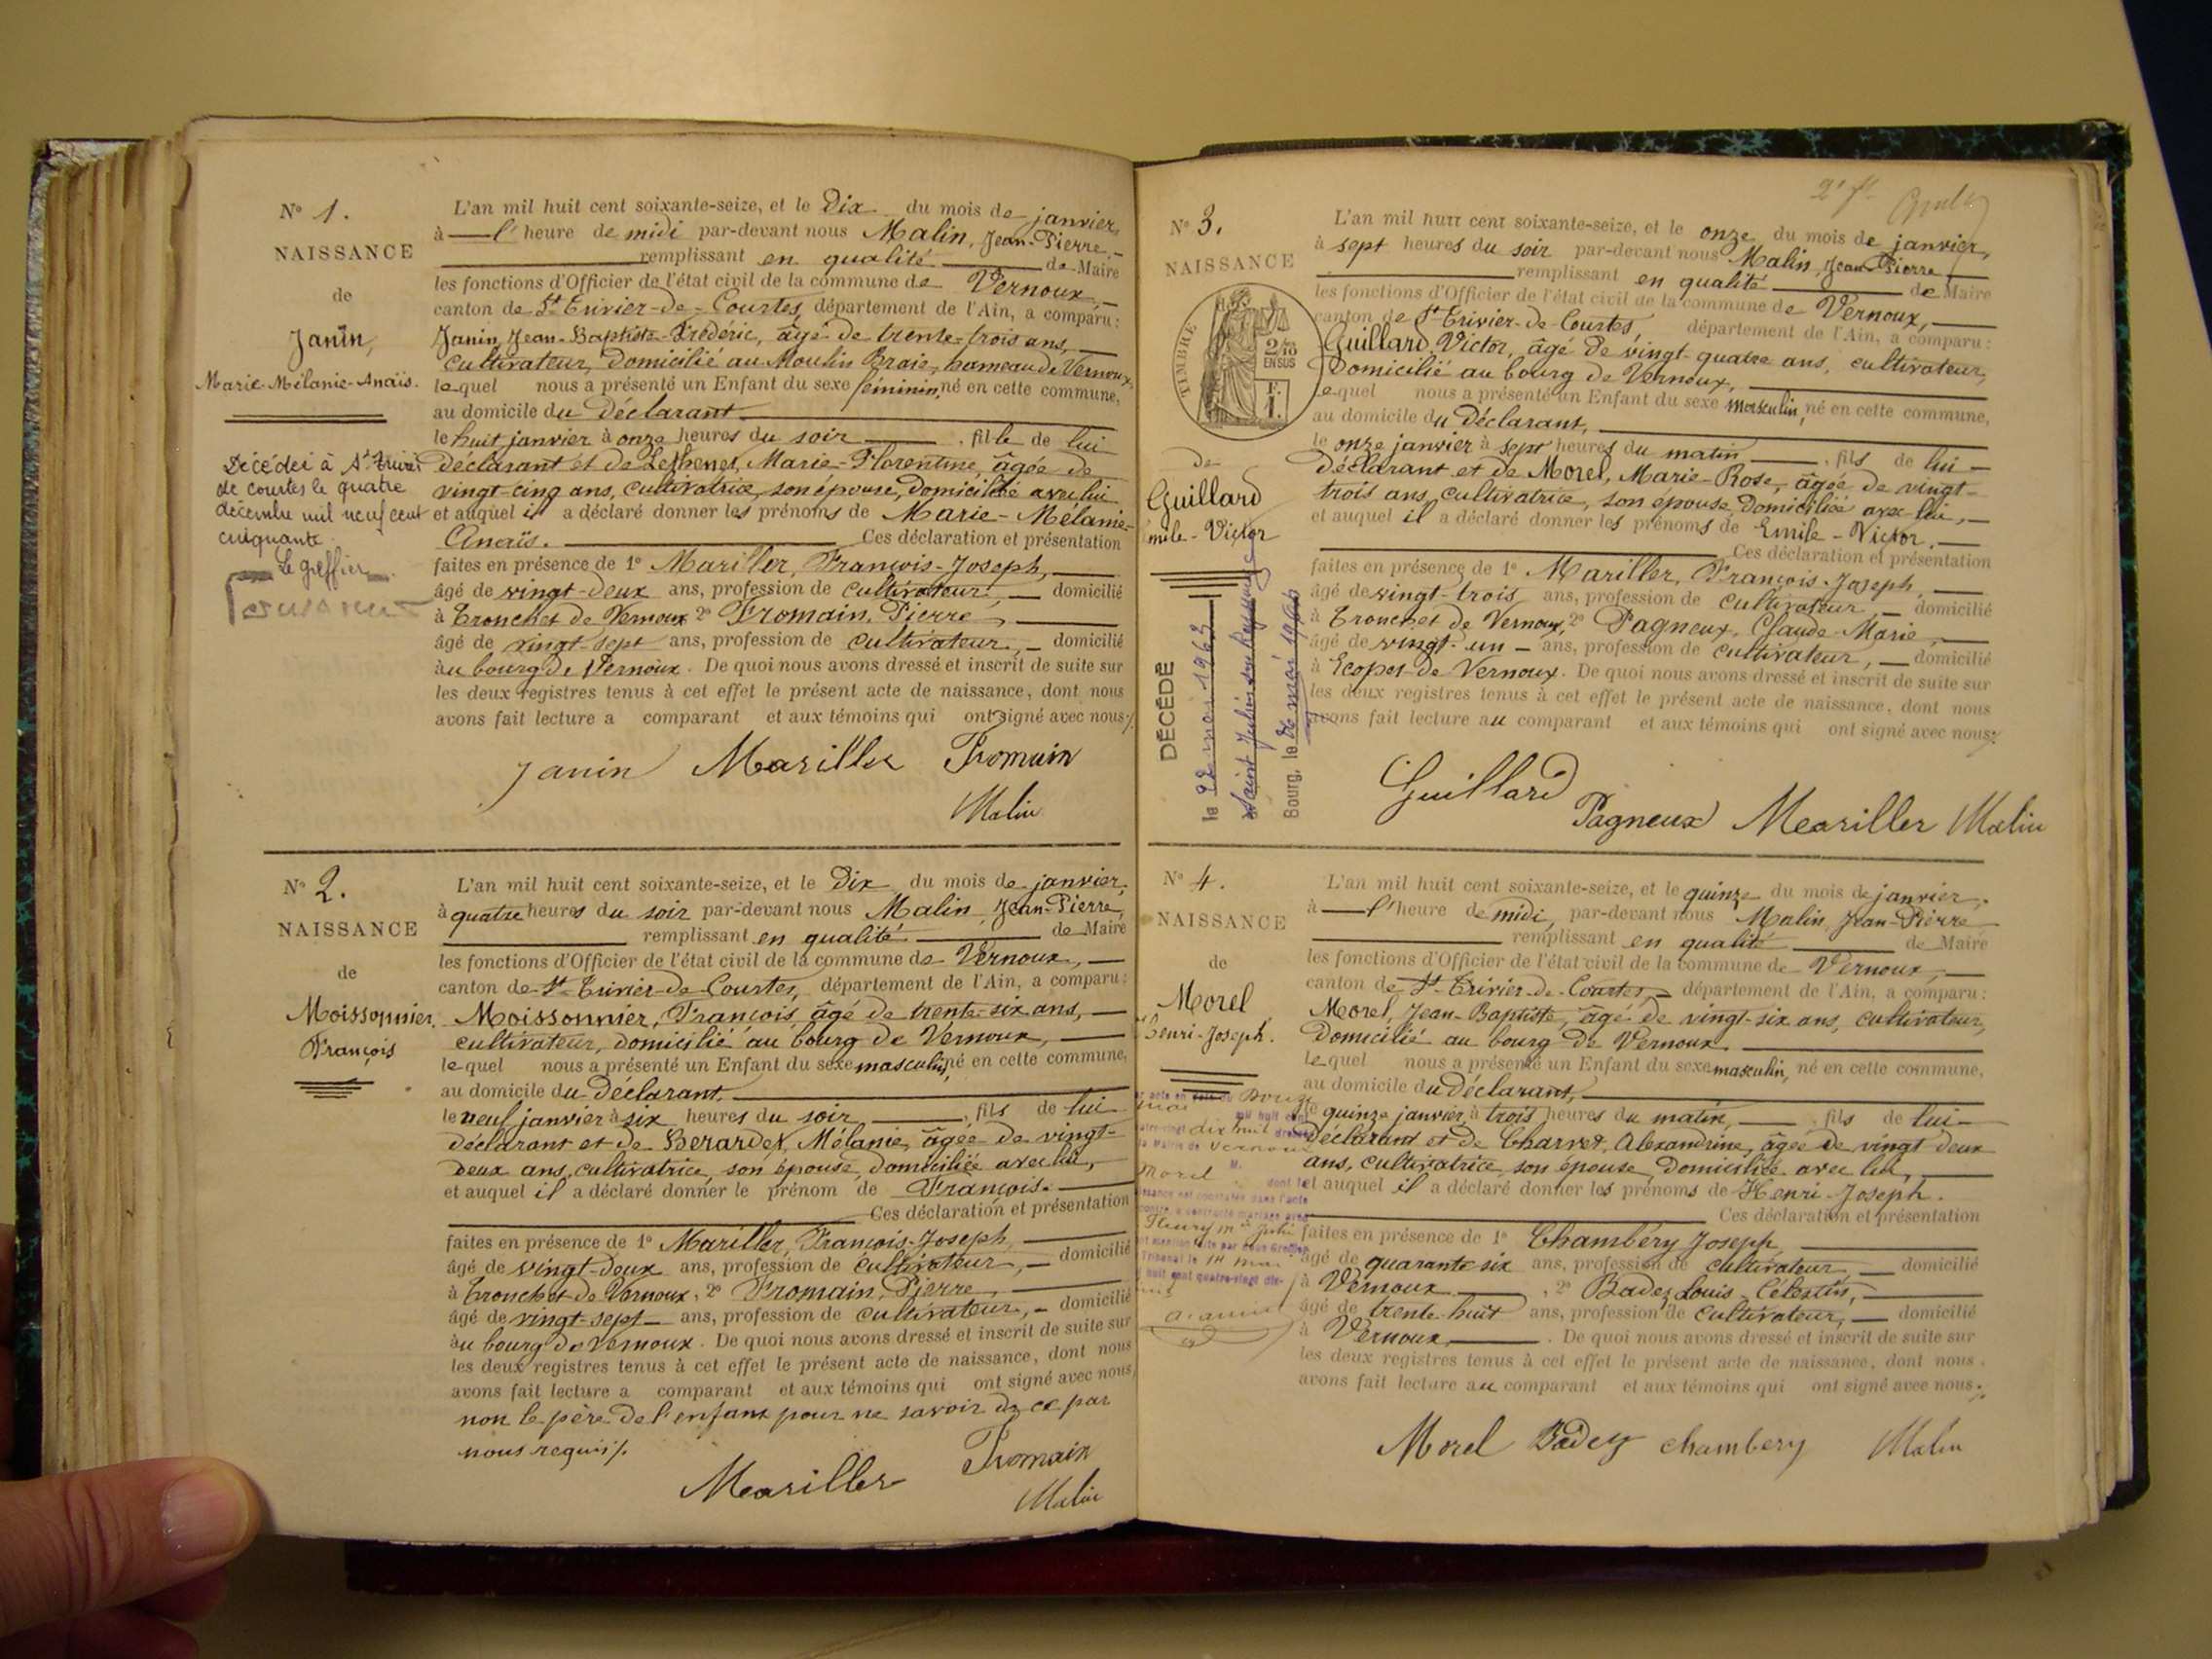 N° 1.
NAISSANCE
de
Janin,
Marie-Mélanie-Anaïs.
de courtes le quatre
décembre mil neuf cent
cinquante
Le greffier
L'an mil huit cent soixante-seize, et le Dix du mois de janvier,
à l'heure de midi par-devant nous Malin, Jean-Pierre
remplissant en qualité de Maire
les fonctions d'Officier de l'état civil de la commune de Vernoux,
canton de St Trivier-de-Courtes, département de l'Ain, a comparu:
Janin, Jean-Baptiste-Frédéric, âgé de trente-trois ans,
cultivateur, domicilié au Moulin Braie, hameau de Vernoux,
lequel nous a présenté un Enfant du sexe féminin, né en cette commune,
au domicile du déclarant
le huit janvier à onze heures du soir, fille de lui
déclarant et de Marie-Florentine, âgée de
vingt-cinq ans, cultivatrice, son épouse, domiciliée avec lui
et auquel il a déclaré donner les prénoms de Marie-Mélanie-
Anaïs. Ces déclaration et présentation
faites en présence de 1° Mariller, François-Joseph,
âgé de vingt-deux ans, profession de cultivateur, domicilié
à Tronchet de Vernoux 2° Fromain, Pierre,
âgé de vingt-sept ans, profession de cultivateur, domicilié
au bourg de Vernoux. De quoi nous avons dressé et inscrit de suite sur
les deux registres tenus à cet effet le présent acte de naissance, dont nous
avons fait lecture a comparant et aux témoins qui ont signé avec nous./.
Janin Mariller Fromain
Malin
N° 2.
NAISSANCE
de
Moissonnier,
François
L'an mil huit cent soixante-seize, et le Dix du mois de janvier,
à quatre heures du soir par-devant nous Malin, Jean-Pierre,
remplissant en qualité de Maire
les fonctions d'Officier de l'état civil de la commune de Vernoux,
canton de St Trivier-de-Courtes, département de l'Ain, a comparu:
Moissonnier, François, âgé de trente-six ans,
cultivateur, domicilié au bourg de Vernoux,
lequel nous a présenté un Enfant du sexe masculin, né en cette commune,
au domicile du Déclarant,
le neuf janvier à six heures du soir, fils de lui
déclarant et de Berardet, Mélanie, âgée de vingt-
deux ans, cultivatrice, son épouse, domiciliée avec lui,
et auquel il a déclaré donner le prénom de François.
Ces déclaration et présentation
faites en présence de 1° Mariller, François-Joseph,
âgé de vingt-deux ans, profession de cultivateur, domicilié
à Tronchet de Vernoux, 2° Fromain, Pierre,
âgé de vingt-sept ans, profession de cultivateur, domicilié
au bourg de Vernoux. De quoi nous avons dressé et inscrit de suite sur
les deux registres tenus à cet effet le présent acte de naissance, dont nous
avons fait lecture a comparant et aux témoins qui ont signé avec nous,
non le père de l'enfant pour ne savoir de ce par
nous requis./.
Mariller Fromain
Malin
2e ft
N° 3.
NAISSANCE
TIMBRE
2/10
EN SUS
F.
1.
de
Guillard
Émile-Victor
DÉCÉDÉ
Bourg, le
L'an mil huit cent soixante-seize, et le onze du mois de janvier,
à sept heures du soir par-devant nous Malin, Jean-Pierre
remplissant en qualité de Maire
les fonctions d'Officier de l'état civil de la commune de Vernoux,
canton de St Trivier-de-Courtes, département de l'Ain, a comparu:
Guillard Victor, âgé de vingt-quatre ans, cultivateur,
Domicilié au bourg de Vernoux,
lequel nous a présenté un Enfant du sexe masculin, né en cette commune,
au domicile du Déclarant,
le onze janvier à sept heures du matin, fils de lui
déclarant et de Morel, Marie-Rose, âgée de vingt-
trois ans, cultivatrice, son épouse, domiciliée avec lui,
et auquel il a déclaré donner les prénoms de Emile-Victor.
Ces déclaration et présentation
faites en présence de 1° Mariller, François-Joseph,
âgé de vingt-trois ans, profession de cultivateur, domicilié
à Tronchet de Vernoux, 2° Pagneux, Claude-Marie,
âgé de vingt-un ans, profession de cultivateur, domicilié
à Ecopet-de Vernoux. De quoi nous avons dressé et inscrit de suite sur
les deux registres tenus à cet effet le présent acte de naissance, dont nous
avons fait lecture au comparant et aux témoins qui ont signé avec nous./.
Guillard Pagneux Mariller Malin
N° 4.
NAISSANCE
de
Morel
Henri-Joseph.
Vernoux
Morel
dont la
L'an mil huit cent soixante-seize, et le quinze du mois de janvier,
à l'heure de midi, par-devant nous Malin, Jean-Pierre
remplissant en qualité de Maire
les fonctions d'Officier de l'état civil de la commune de Vernoux,
canton de St-Trivier-de-Courtes, département de l'Ain, a comparu:
Morel, Jean-Baptiste, âgé de vingt-six ans, cultivateur,
Domicilié au bourg de Vernoux.
lequel nous a présenté un Enfant du sexe masculin, né en cette commune,
au domicile du Déclarant,
le quinze janvier à trois heures du matin, fils de lui
Déclarant et de Charvet, Alexandrine, âgée de vingt deux
ans, cultivatrice, son épouse, domiciliée avec lui,
et auquel il a déclaré donner les prénoms de Henri-Joseph.
Ces déclaration et présentation
faites en présence de 1° Chambéry Joseph
âgé de quarante six ans, profession de cultivateur, domicilié
à Vernoux, 2° Badey Louis-Célestin,
âgé de trente-huit ans, profession de cultivateur, domicilié
à Vernoux. De quoi nous avons dressé et inscrit de suite sur
les deux registres tenus à cet effet le présent acte de naissance, dont nous
avons fait lecture au comparant et aux témoins qui ont signé avec nous./.
Morel Badey Chambery Malin